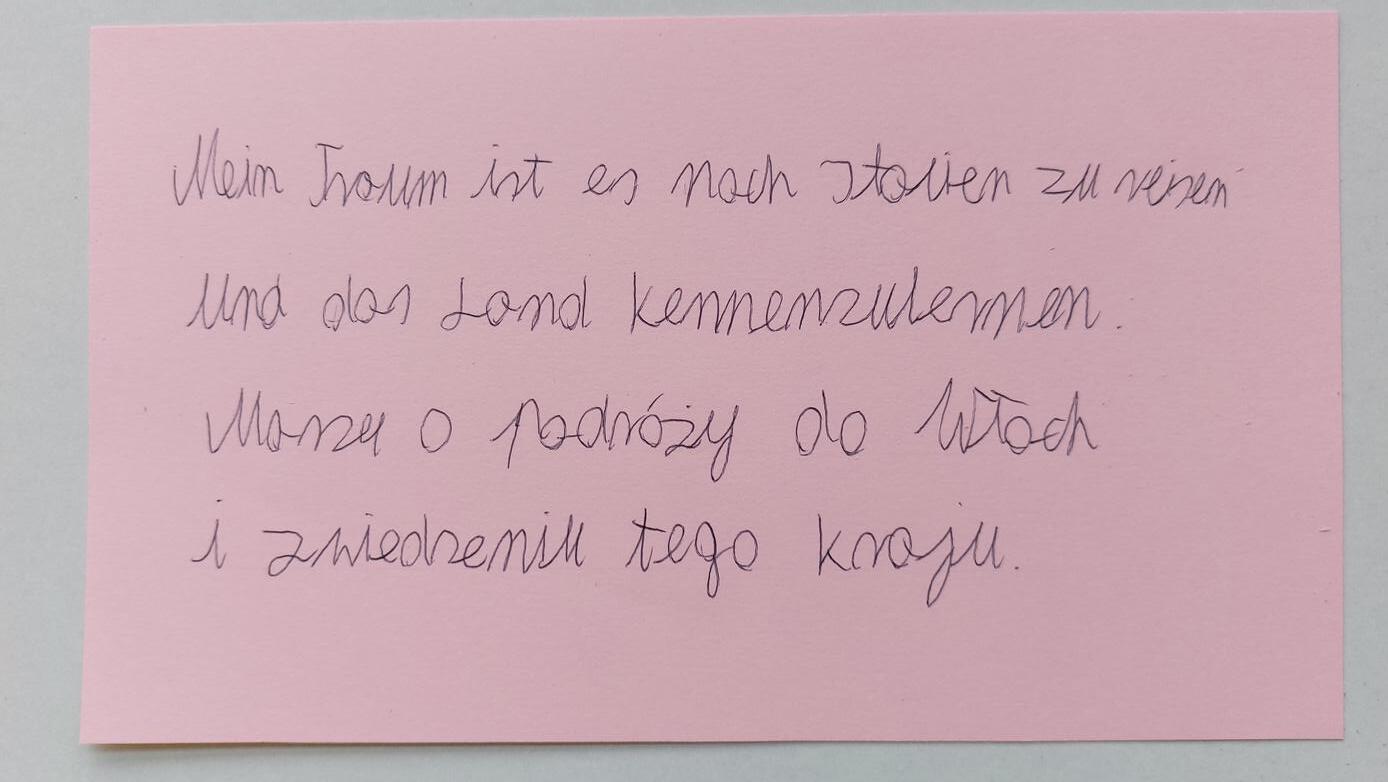 Mein Traum ist es nach Italien zu reisen
und das Land kennenzulernen.
Marzę o podróży do Włoch
i zwiedzeniu tego kraju.